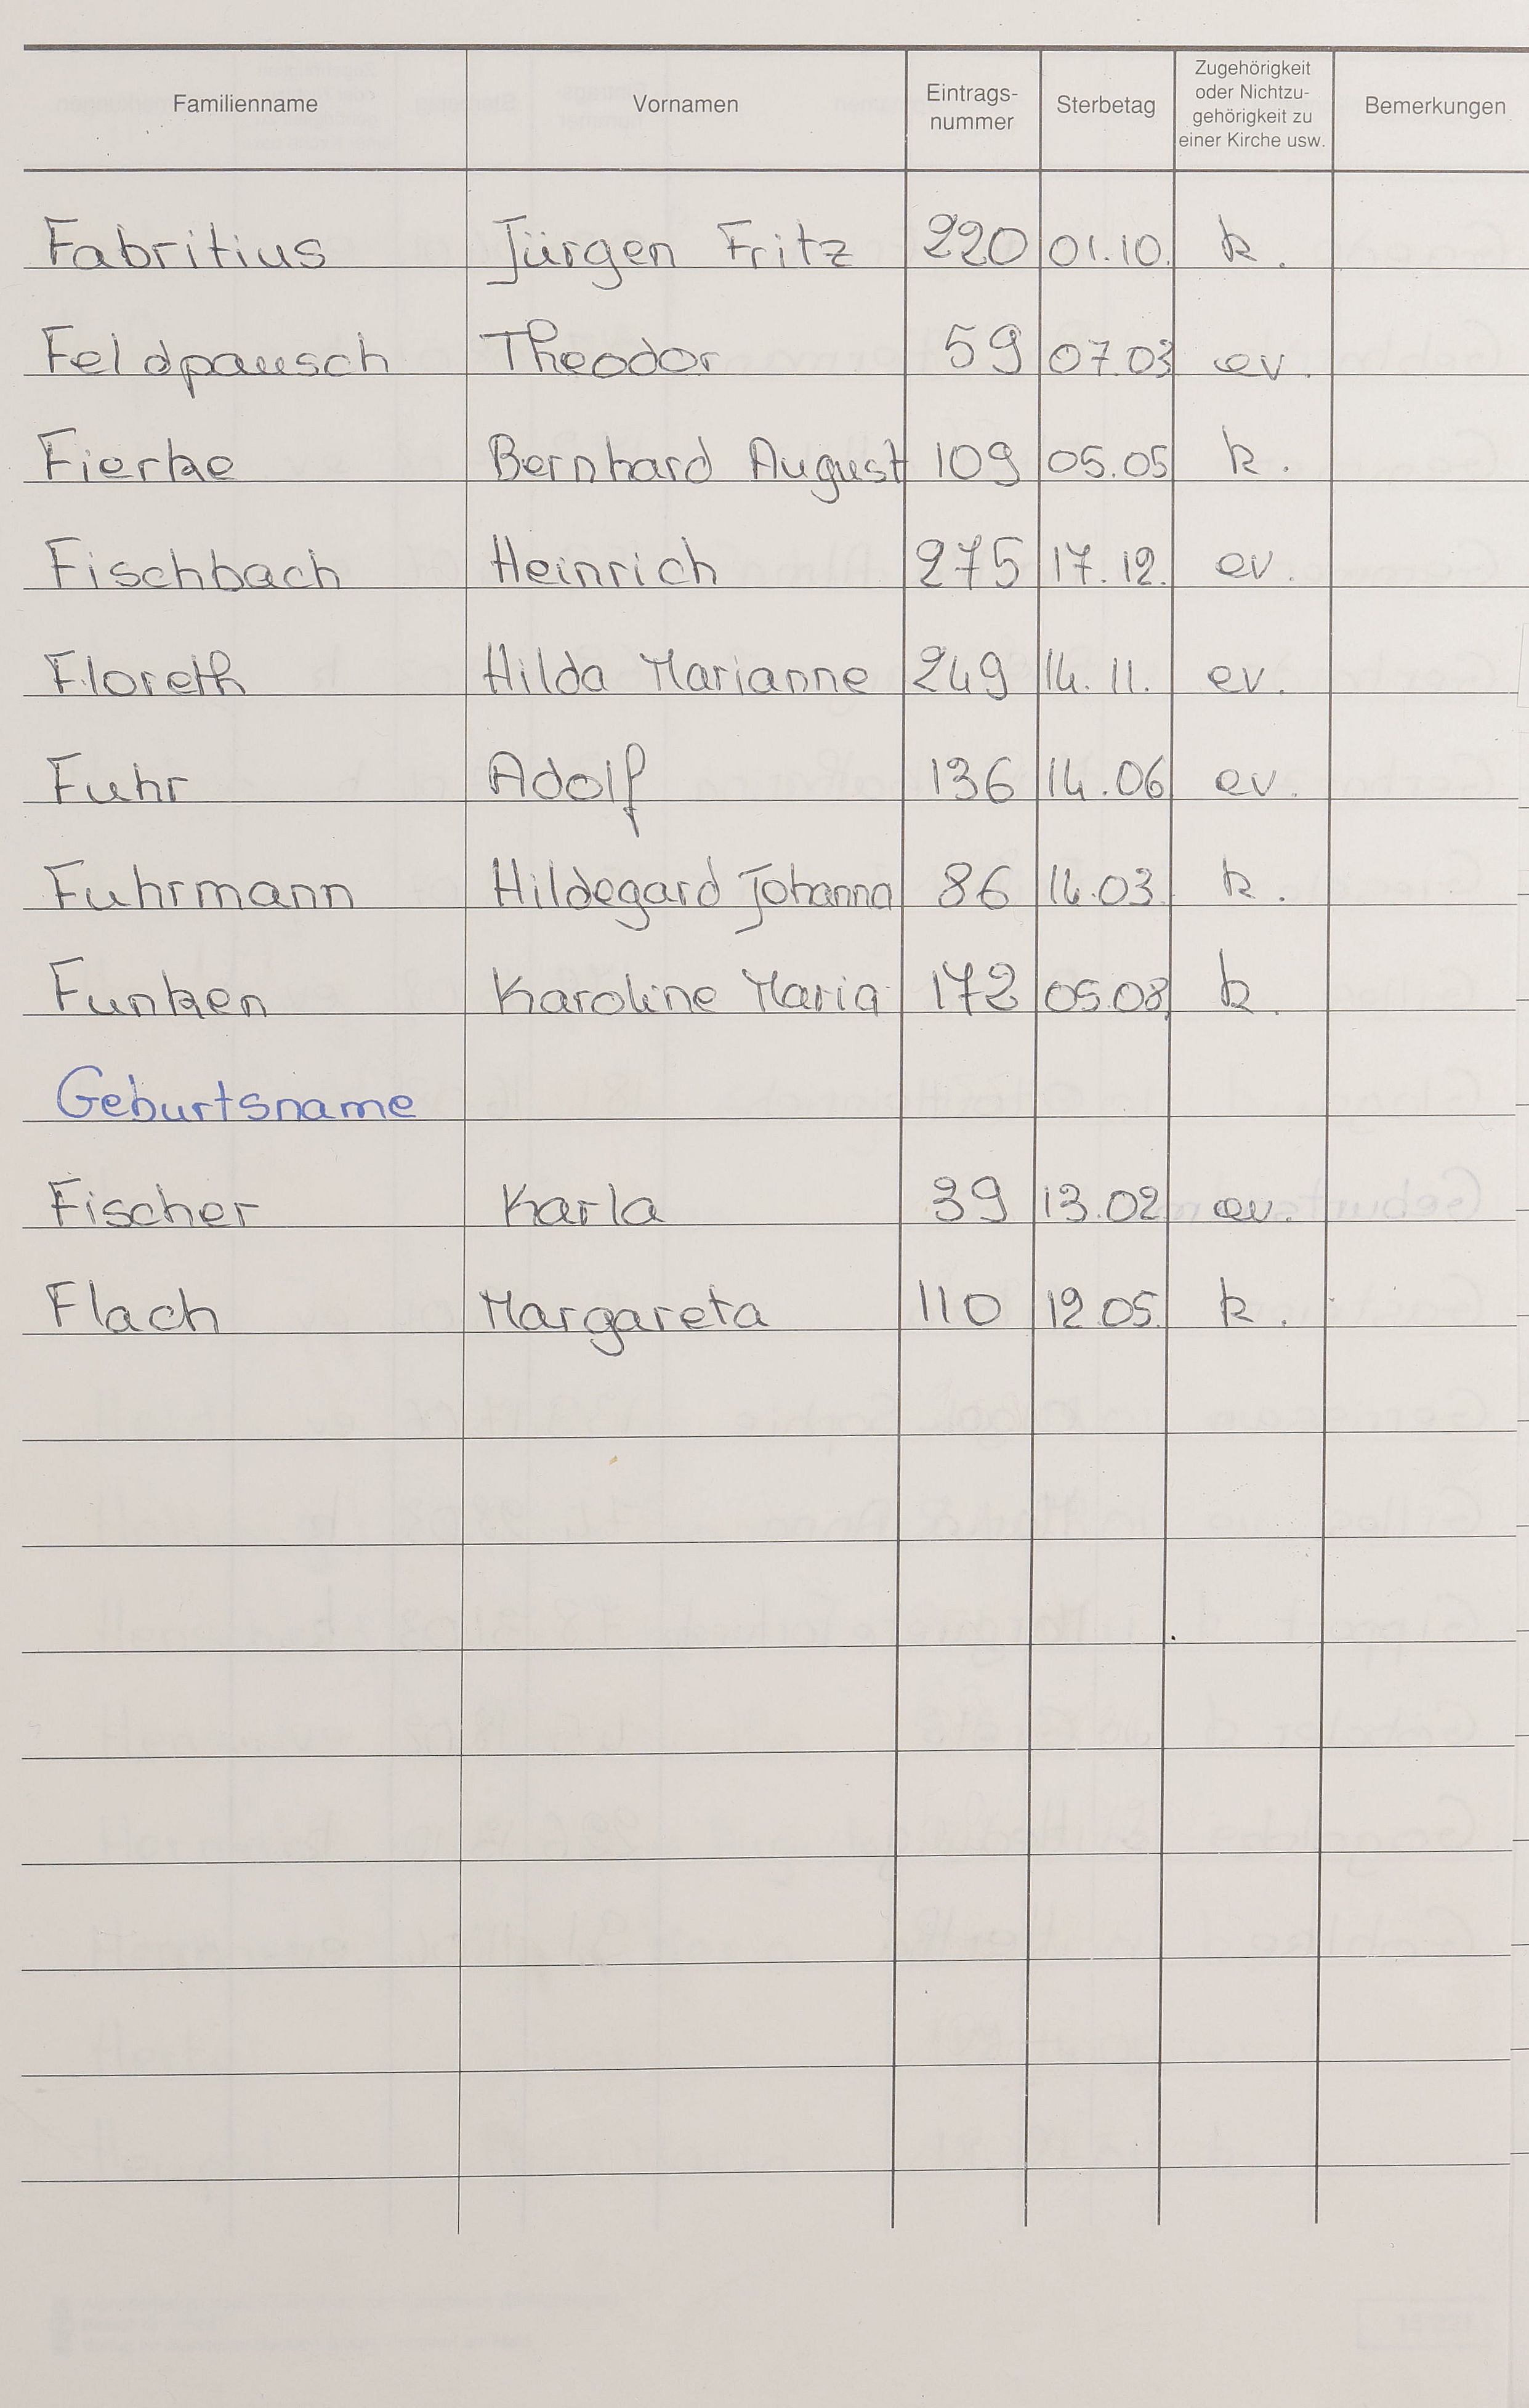 Familienname Vornamen Eintrags-nummer Sterbetag Zugehörigkeit oder Nichtzu-gehörigkeit zu einer Kirche usw. Bemerkungen
Fabritius Jürgen Fritz 220 01.10. k.
Feldpausch Theodor 59 07.03 ev.
Fierke Bernhard August 109 05.05 k.
Fischbach Heinrich 275 17.12. ev.
Floreth Hilda Marianne 249 14.11. ev.
Fuhr Adolf 136 14.06 ev.
Fuhrmann Hildegard Johanna 86 14.03. k.
Funken Karoline Maria 172 05.08. k.
Geburtsname
Fischer Karla 39 13.02 ev.
Flach Margareta 110 12.05. k.